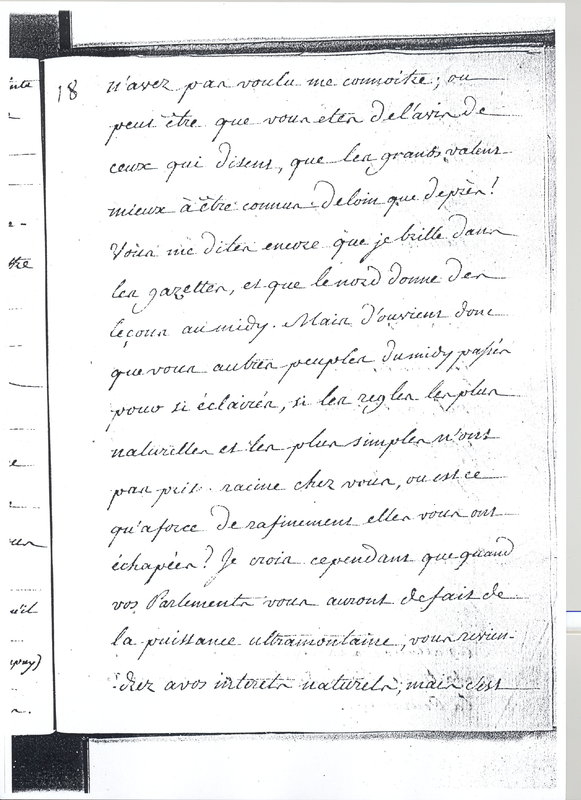 nte
18
n'avez pas voulu me connoitre; ou
peut être que vous etes de l'avis de
ceux qui disent, que les grands valent
mieux à être connus de loin que de près!
Vous me dites encore que je brille dans
les gazettes, et que le nord donne des
leçons au midy. Mais d'ouvient donc
que vous autres peuples du midy passés
pour si éclairés, si les regles les plus
naturelles et les plus simples n'ont
pas prit racine chez vous, ou est ce
qu'a force de rafinement elles vous ont
échapées? Je crois cependant que quand
vos Parlements vous auront defait de
la puissance ultramontaine, vous revien-
drez a vos interets naturels; mais c'est